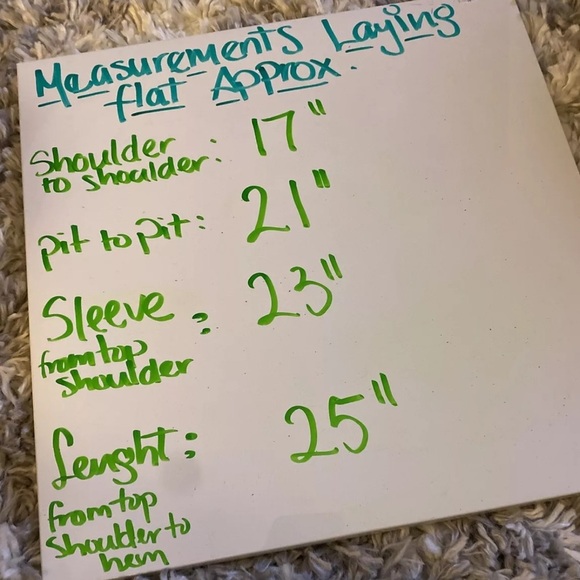 Measurements Laying
flat Approx.
Shoulder
to shoulder: 17"
pit to pit: 21"
Sleeve : 23"
from top
shoulder
Lenght: 25"
from top
shoulder to
hem